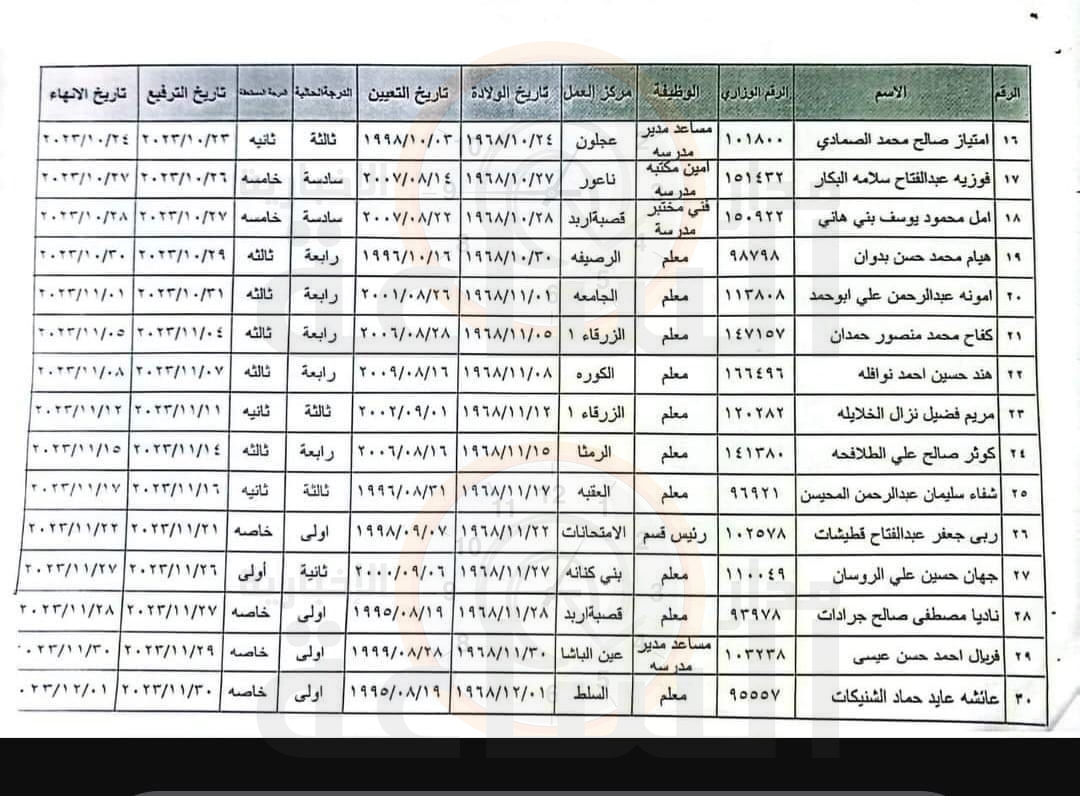 الرقم الاسم الرقم الوزاري الوظيفة مركز العمل تاريخ الولادة تاريخ التعيين الدرجة الحالية الدرجة المستحقة تاريخ الترفيع تاريخ الانهاء
١٦ امتياز صالح محمد الصمادي ١٠١٨٠٠ مساعد مدير مدرسه عجلون ١٩٦٨/١٠/٢٤ ١٩٩٨/١٠/٠٣ ثالثة ثانيه ٢٠٢٣/١٠/٢٣ ٢٠٢٣/١٠/٢٤
١٧ فوزيه عبدالفتاح سلامه البكار ١٥١٤٣٢ امين مكتبه مدرسه ناعور ١٩٦٨/١٠/٢٧ ٢٠٠٧/٠٨/١٤ سادسة خامسه ٢٠٢٣/١٠/٢٦ ٢٠٢٣/١٠/٢٧
١٨ امل محمود يوسف بني هاني ١٥٠٩٢٢ فني مختبر مدرسة قصبة اربد ١٩٦٨/١٠/٢٨ ٢٠٠٧/٠٨/٢٢ سادسة خامسه ٢٠٢٣/١٠/٢٧ ٢٠٢٣/١٠/٢٨
١٩ هيام محمد حسن بدوان ٩٨٧٩٨ معلم الرصيفه ١٩٦٨/١٠/٣٠ ١٩٩٦/١٠/١٦ رابعة ثالثه ٢٠٢٣/١٠/٢٩ ٢٠٢٣/١٠/٣٠
٢٠ امونه عبدالرحمن علي ابوحمد ١١٣٨٠٨ معلم الجامعه ١٩٦٨/١١/٠١ ٢٠٠١/٠٨/٢٦ رابعة ثالثه ٢٠٢٣/١٠/٣١ ٢٠٢٣/١١/٠١
٢١ كفاح محمد منصور حمدان ١٤٧١٥٧ معلم الزرقاء ١ ١٩٦٨/١١/٠٥ ٢٠٠٦/٠٨/٢٨ رابعة ثالثه ٢٠٢٣/١١/٠٤ ٢٠٢٣/١١/٠٥
٢٢ هند حسين احمد نوافله ١٦٦٤٩٦ معلم الكوره ١٩٦٨/١١/٠٨ ٢٠٠٩/٠٨/١٦ رابعة ثالثه ٢٠٢٣/١١/٠٧ ٢٠٢٣/١١/٠٨
٢٣ مريم فضيل نزال الخلايله ١٢٠٢٨٢ معلم الزرقاء ١ ١٩٦٨/١١/١٢ ٢٠٠٢/٠٩/٠١ ثالثة ثانيه ٢٠٢٣/١١/١١ ٢٠٢٣/١١/١٢
٢٤ كوثر صالح علي الطلافحه ١٤١٣٨٠ معلم الرمثا ١٩٦٨/١١/١٥ ٢٠٠٦/٠٨/١٦ رابعة ثالثه ٢٠٢٣/١١/١٤ ٢٠٢٣/١١/١٥
٢٥ شفاء سليمان عبدالرحمن المحيسن ٩٦٩٢١ معلم العقبه ١٩٦٨/١١/١٧ ١٩٩٦/٠٨/٣١ ثالثة ثانيه ٢٠٢٣/١١/١٦ ٢٠٢٣/١١/١٧
٢٦ ربى جعفر عبدالفتاح قطيشات ١٠٢٥٧٨ رئيس قسم الامتحانات ١٩٦٨/١١/٢٢ ١٩٩٨/٠٩/٠٧ اولى خاصه ٢٠٢٣/١١/٢١ ٢٠٢٣/١١/٢٢
٢٧ جهان حسين علي الروسان ١١٠٠٤٩ معلم بني كنانه ١٩٦٨/١١/٢٧ ٢٠٠٠/٠٩/٠٦ ثانية أولى ٢٠٢٣/١١/٢٦ ٢٠٢٣/١١/٢٧
٢٨ ناديا مصطفى صالح جرادات ٩٣٩٧٨ معلم قصبة اربد ١٩٦٨/١١/٢٨ ١٩٩٥/٠٨/١٩ اولى خاصه ٢٠٢٣/١١/٢٧ ٢٠٢٣/١١/٢٨
٢٩ فريال احمد حسن عيسى ١٠٣٢٣٨ مساعد مدير مدرسه عين الباشا ١٩٦٨/١١/٣٠ ١٩٩٩/٠٨/٢٨ اولى خاصه ٢٠٢٣/١١/٢٩ ٠٢٣/١١/٣٠
٣٠ عائشه عايد حماد الشنيكات ٩٥٥٥٧ معلم السلط ١٩٦٨/١٢/٠١ ١٩٩٥/٠٨/١٩ اولى خاصه ٢٠٢٣/١١/٣٠ ٠٢٣/١٢/٠١
مدار الساعة الاخبارية
مدار الساعة الاخبارية